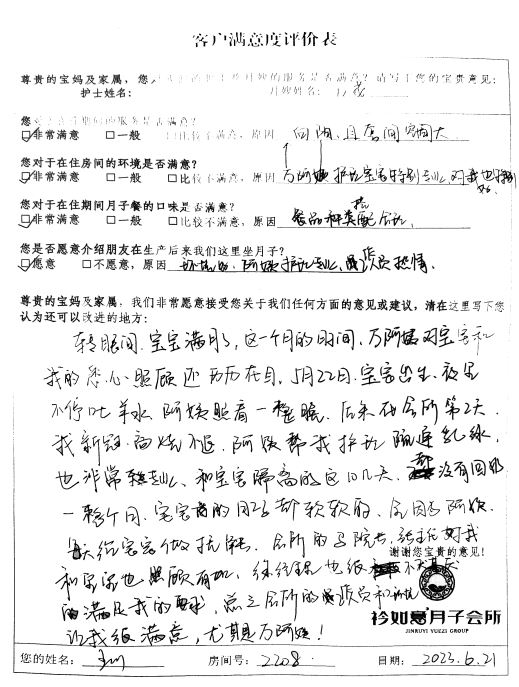 客户满意度评价表
尊贵的宝妈及家属，您对 的服务是否满意？请写下您的宝贵意见：
护士姓名： 月嫂姓名：万
您对 的服务是否满意？
☑非常满意 □一般 □比较不满意，原因 向阳、且房间宽大
您对于在住房间的环境是否满意？
☑非常满意 □一般 □比较不满意，原因 万阿姨护理宝宝特别专业、对我也特别好。
您对于在住期间月子餐的口味是否满意？
☑非常满意 □一般 □比较不满意，原因 餐品种类搭配合理
您是否愿意介绍朋友在生产后来我们这里坐月子？
☑愿意 □不愿意，原因 环境好、阿姨护理专业、服务员热情。
尊贵的宝妈及家属，我们非常愿意接受您关于我们任何方面的意见或建议，请在这里写下您
认为还可以改进的地方：
转眼间、宝宝满月了，这一个月的时间，万阿姨对宝宝和
我的悉心照顾还历历在目，5月22日宝宝出生、夜里
不停吐羊水、阿姨照看一整晚、后来在会所第2天
我新冠、高烧不退、阿姨帮我护理 疏通乳腺，
也非常专业、和宝宝隔离的这10几天、都没有回奶
一整个月、宝宝 的 都软软的、全因万阿姨
每天给宝宝做抚触、会所的马院长、张主任对我
和宝宝也照顾有加、徐经理也
的满足我的要求，总之会所的 服务员和
让我很满意，尤其万阿姨！
谢谢您宝贵的意见！
衿如意月子会所
JINRUYI YUEZI GROUP
您的姓名： 房间号：2208. 日期：2023.6.21